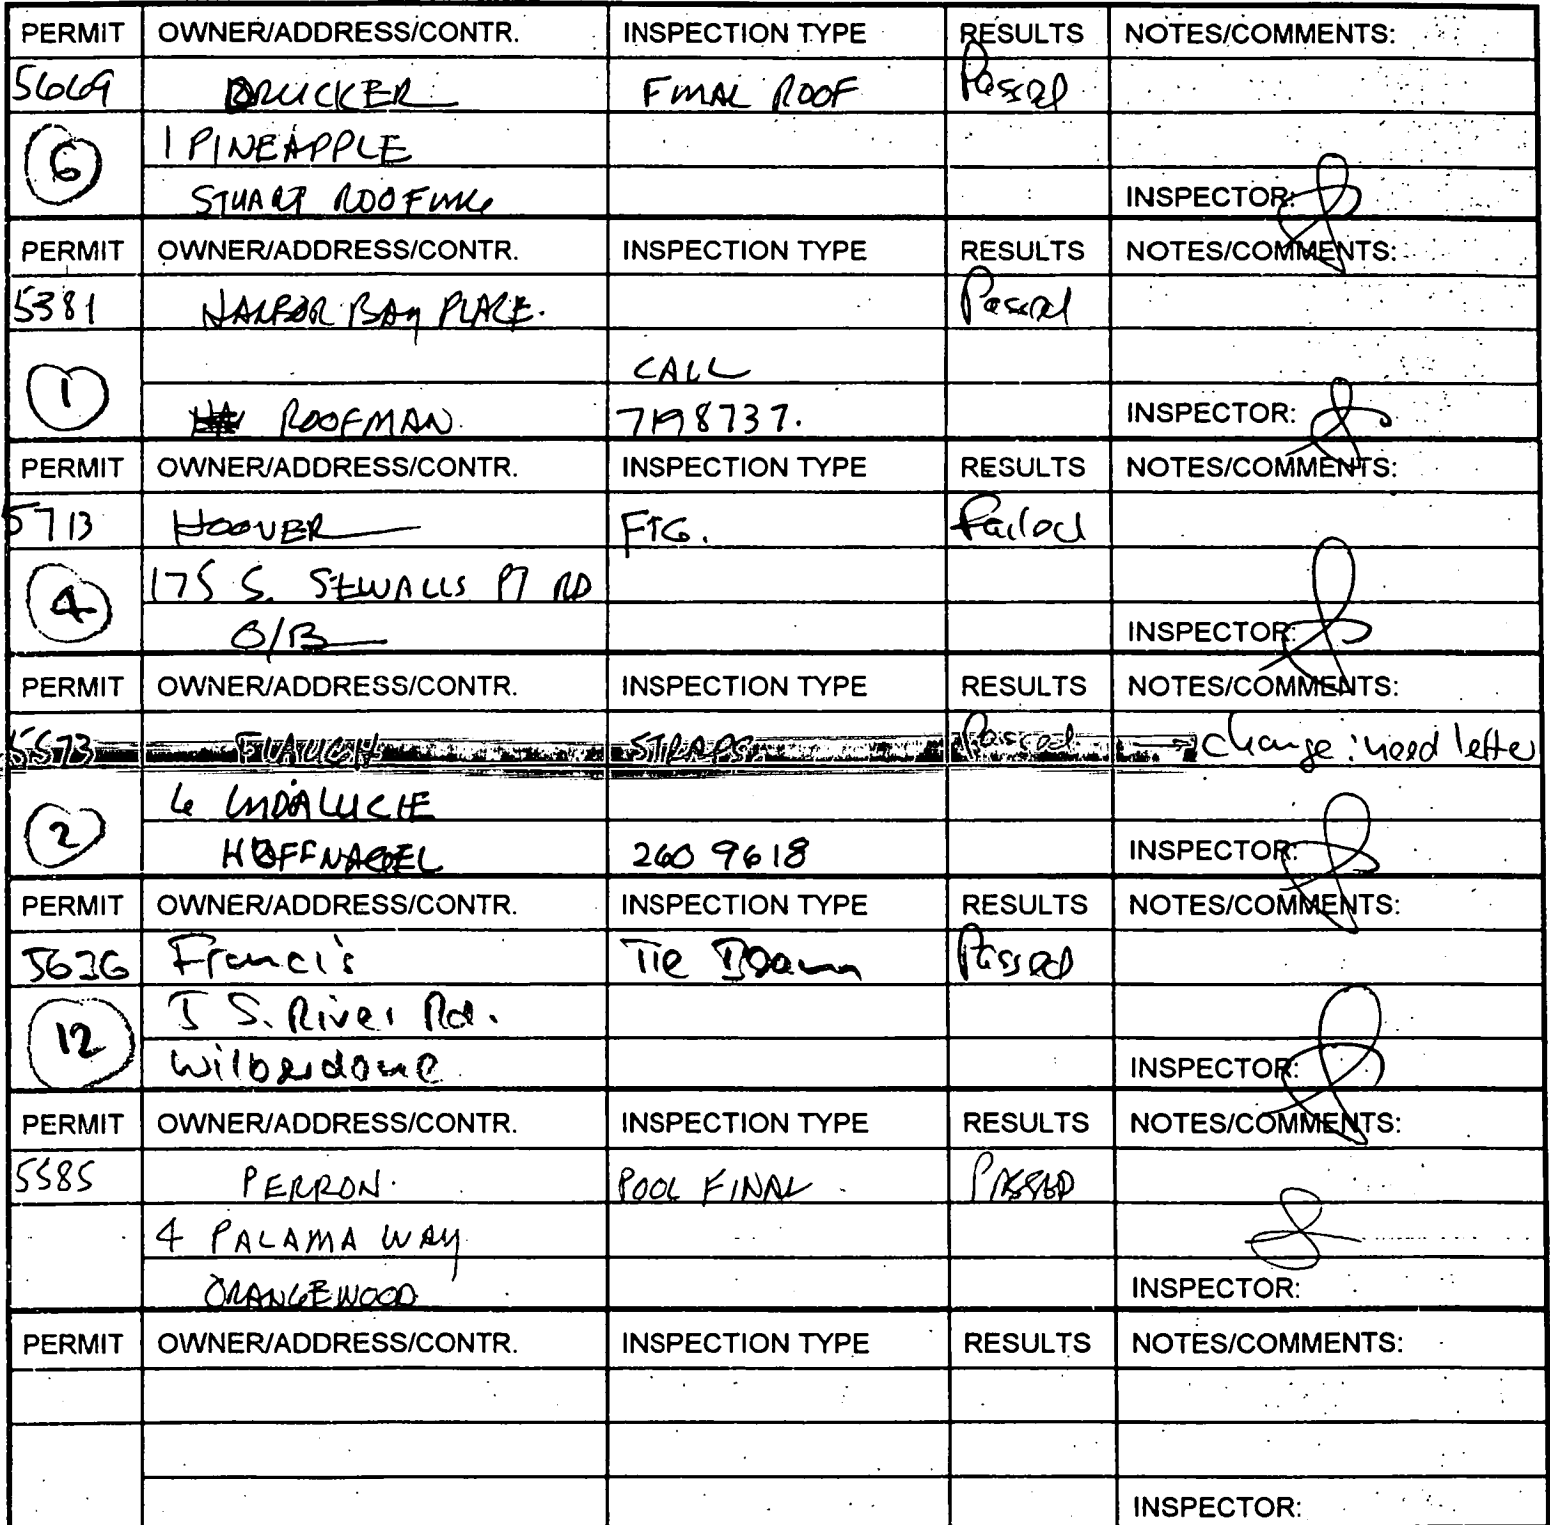 PERMIT OWNER/ADDRESS/CONTR. INSPECTION TYPE RESULTS NOTES/COMMENTS:
5669 DRUCKER FINAL ROOF Passed
6 1 PINEAPPLE
STUART ROOFING INSPECTOR:
PERMIT OWNER/ADDRESS/CONTR. INSPECTION TYPE RESULTS NOTES/COMMENTS:
5381 HARBOR BAY PLACE. Passed
1 CALL
ROOFMAN. 7198737. INSPECTOR:
PERMIT OWNER/ADDRESS/CONTR. INSPECTION TYPE RESULTS NOTES/COMMENTS:
5713 HOOVER FTG. Failed
4 175 S. SEWALLS PT RD
O/B INSPECTOR:
PERMIT OWNER/ADDRESS/CONTR. INSPECTION TYPE RESULTS NOTES/COMMENTS:
5573 FLAUGH STRAPS Passed change: need letter
2 6 INDALUCIE
HUFFNAGEL 260 9618 INSPECTOR:
PERMIT OWNER/ADDRESS/CONTR. INSPECTION TYPE RESULTS NOTES/COMMENTS:
5636 Francis Tie Beam Passed
12 5 S. River Rd.
INSPECTOR:
PERMIT OWNER/ADDRESS/CONTR. INSPECTION TYPE RESULTS NOTES/COMMENTS:
5585 PERRON. POOL FINAL PASSED
4 PALAMA WAY
ORANGEWOOD INSPECTOR:
PERMIT OWNER/ADDRESS/CONTR. INSPECTION TYPE RESULTS NOTES/COMMENTS:
INSPECTOR: